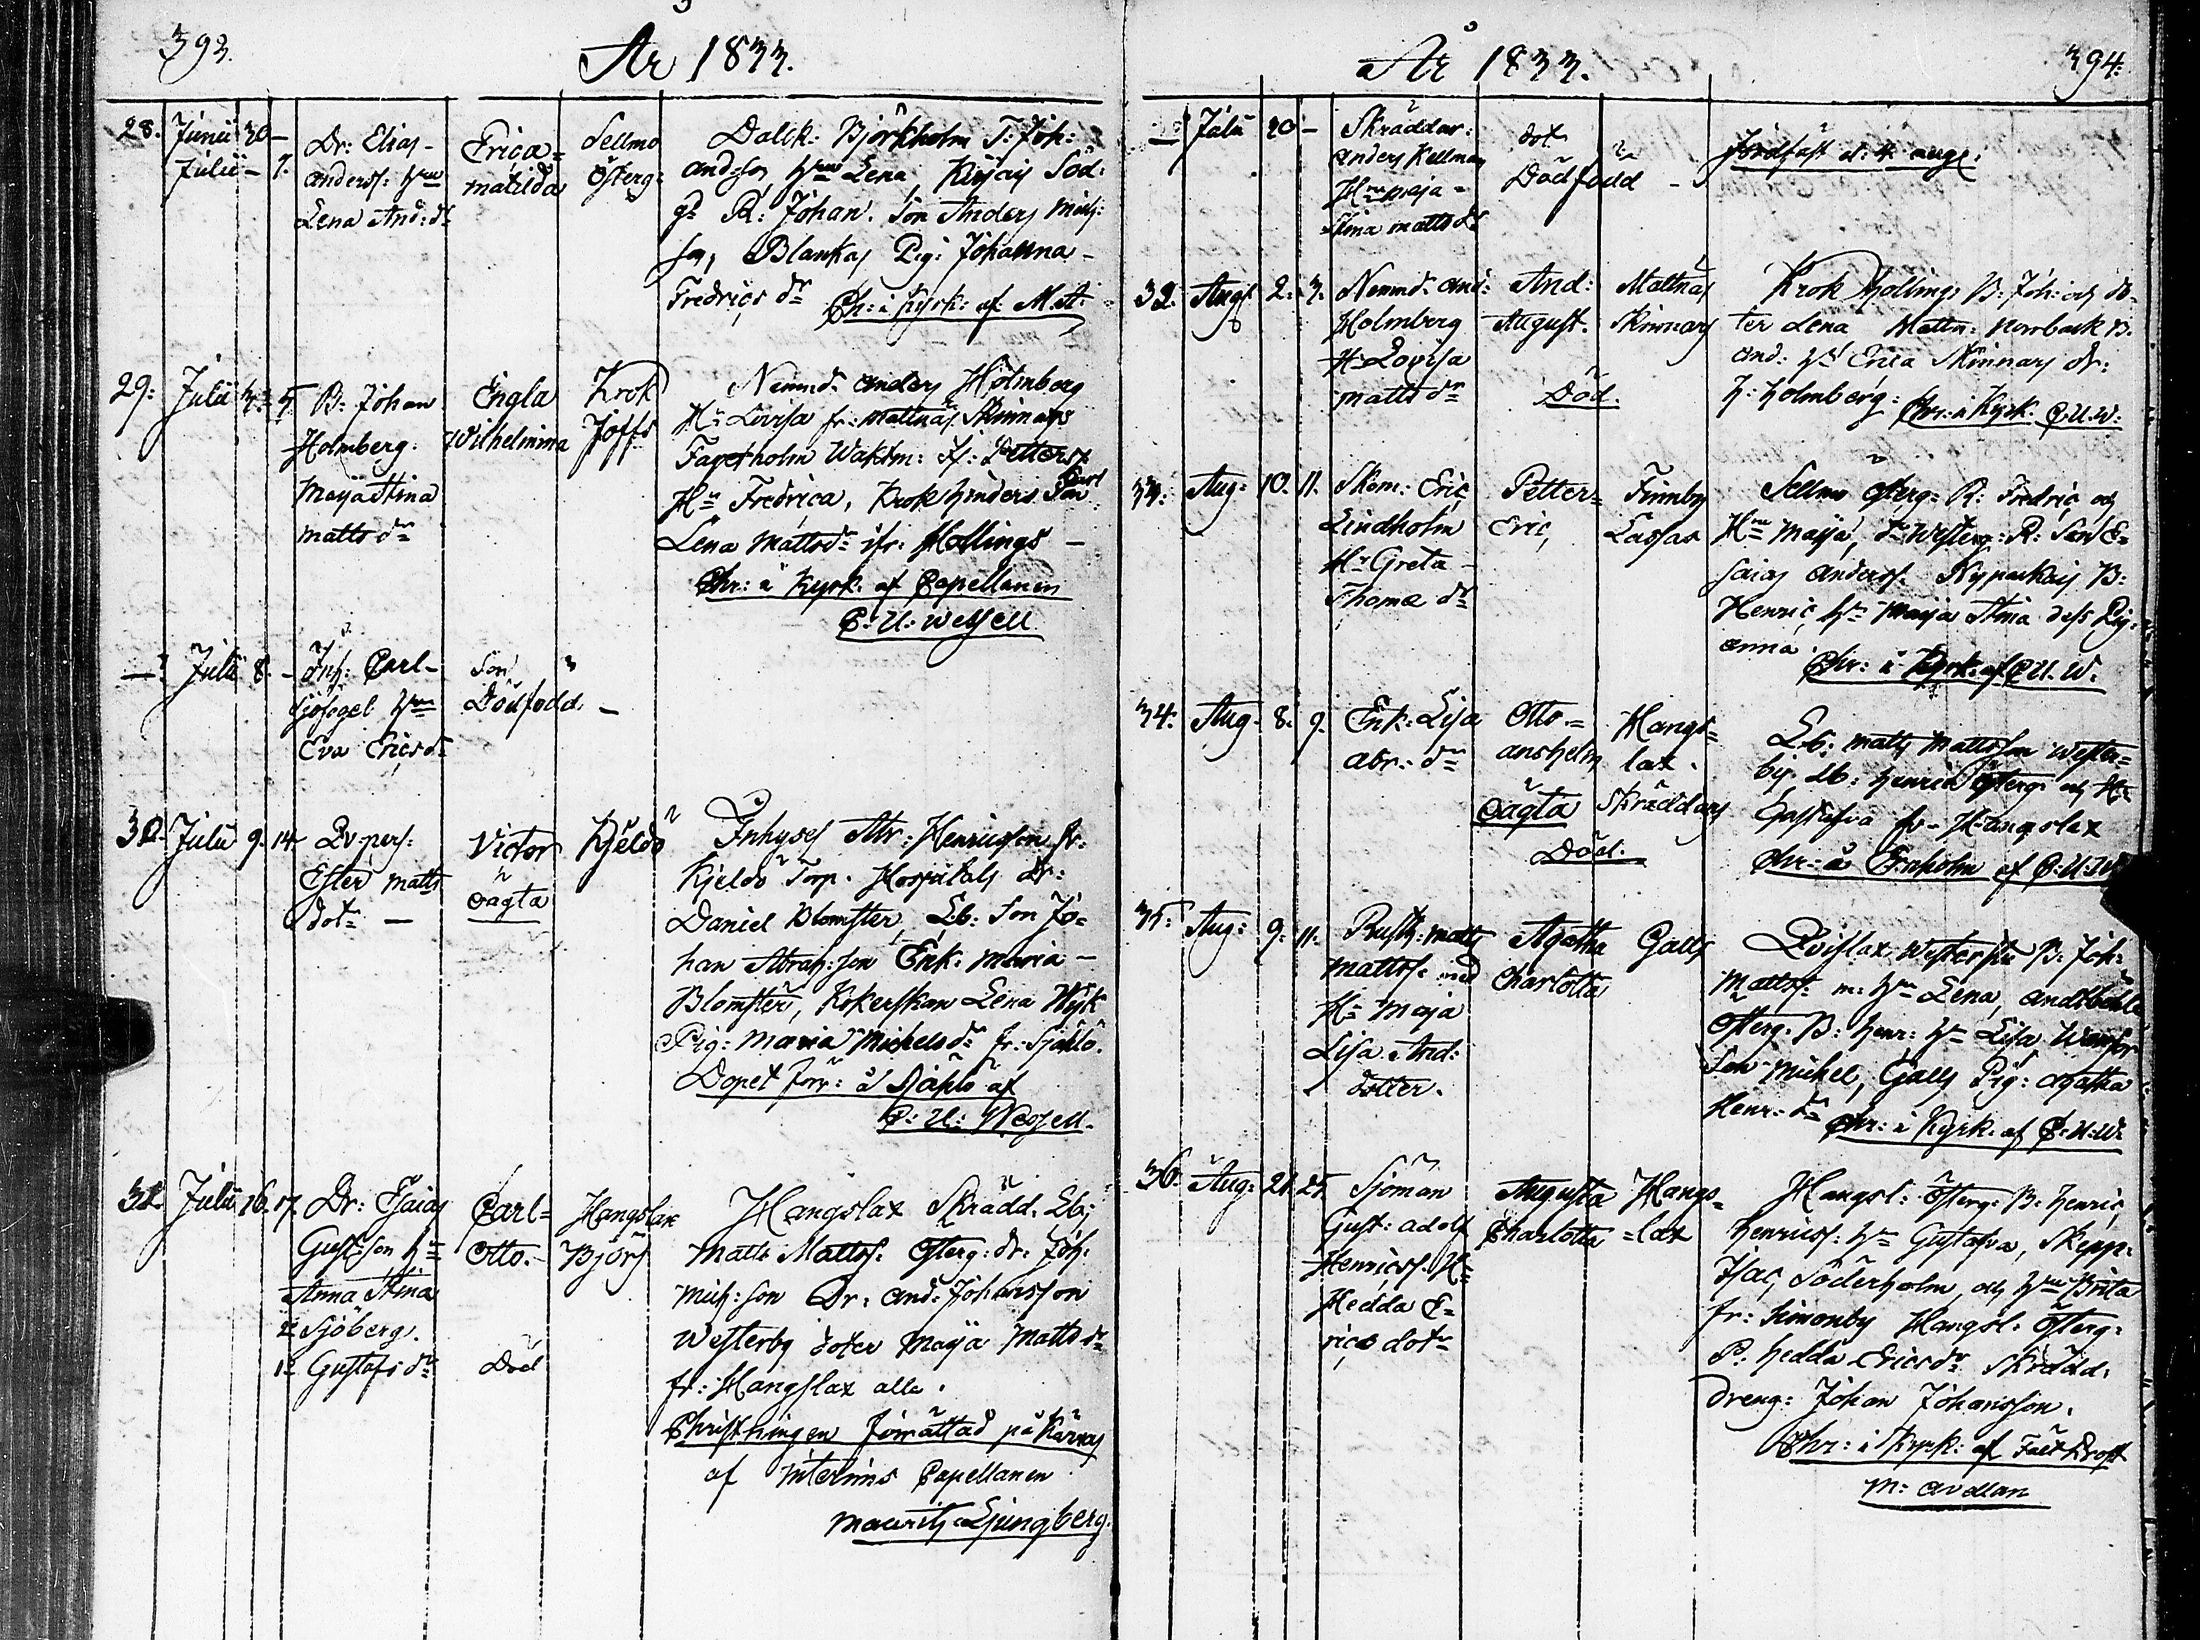 393.
År 1833.
28. Junii 30 -
Julii - 7.
Dr: Elias
Anderss: Hu
Lena And: dr
Erica=
Matilda
Sellmo
Österg:
Dalck: Björkholm T: Joh:
Andsson Hu Lena
gd R: Johan. Son Anders Mich:
son, Blankas Pig: Johanna
Fredrics dr Chr: i Kyrk: af M.A.
29: Julii 3. 5.
B: Johan
Holmberg.
Maja Stina
Matts dr
Engla
Wilhelmina
Krok
Joffs
Nemnd: Anders Holmberg
Hu Lovisa fr: Mattnäs Skinnars
Fagerholm Waktm: Petters
Hu Fredrica, Krok Son Carl
Lena Mattsdr ifr: Hollings -
Chr: i Kyrk. af Capellanen
C: U: Wessell
- Julii 8. -
Inh: Carl
Sjöfogel Hu
Eva Ericsdr
Son
Dödfödd. -
30. Julii 9. 14
Qv. pers:
Ester Matts
dotr -
Victor
oägta
Kjeldö
Inhyses Abr: Henricsson fr:
Kjeldö Torp. Hospitals Dr:
Daniel Blomster, Lb: Son Jo=
han Abrah:son Enk: Maria -
Blomster, Kokerskan Lena Wik
Pig: Maria Michelsdr fr: Själö.
Dopet förr: å Själö af
C: U: Wessell.
31. Julii 16. 17.
Dr: Esaias
Gust:son Hu
Anna Stina
Sjöberg.
Gustafs dr
Carl=
Otto.
Död
Hangslax
Björs
Hangslax Skrädd. Lb;
Matts Mattss. Österg: dr: Joh.
Mich:son Dr: And: Johansson
Westerby doter Maja Matts dr
fr: Hangslax alla.
Christningen förrättad på Kärnas
af Interims Capellanen
Mauritz Ljungberg.
År 1833.
394.
- Julii 20 -
Skräddar:
Anders Kellman
Hu Maja
Stina Matts dr
dot
Dödfödd -
Jordfäst d: 4 Aug:
32. Aug: 2. 3.
Nemnd. And:
Holmberg
Hu Lovisa
Matts dr
And:
August.
Död.
Mattnäs
Skinnars
Krok Hollings B: Joh: och do=
ter Lena Mattn: Norrback B.
And: Hu Erica Skinnars dr:
J: Holmberg: Chr: i Kyrk. C.U.W.
33. Aug: 10. 11.
Skom: Eric
Lindholm
Hu Greta -
Thomæ dr
Petter=
Eric,
Finnby
Lassas
Sellmo Österg: R: Fredric och
Hu Maja, Do Westerg: R: Son E=
saias Anderss. B:
Henric Hu Maja Stina dess Pig:
Anna.
Chr: i Kyrk. af C.U.W.
34: Aug. 8. 9.
Enk: Lisa
Abr: dr
Otto=
Anshelm
oägta
Död.
Hangs=
lax.
Skräddars
Lb: Matts Mattsson Wester=
by. Lb: Henric Österg: och Hu
Gustafva fr: Hangslax
Chr: å Ernholm af C:U:W.
35. Aug: 9. 11.
Rusth: Matts
Mattss. med
Hu Maja
Lisa And:
dotter.
Agatha
Charlotta
Galls
Qvislax Westerstu B: Joh:
Mattss: m: Hu Lena, Andböhle
Österg: B: Henr: Hu Lisa
Son Mickel, Galls Pig: Agatha
Henr: dr Chr: i Kyrk. af C:U:W.
36. Aug: 21. 25.
Sjöman
Gust: Adolf
Henricss. Hu
Hedda E=
rics dotr
Augusta
Charlotta
Hangs=
=lax
Hangsl: Österg: B: Henric
Henricss: Hu Gustafva, Skepp:
Isac Söderholm, och Hu Brita
fr: Simonby Hangsl: Österg:
P: Hedda Ericsdr Skrädd.
dreng: Johan Johansson.
Chr: i Kyrk: af
M: Avellan